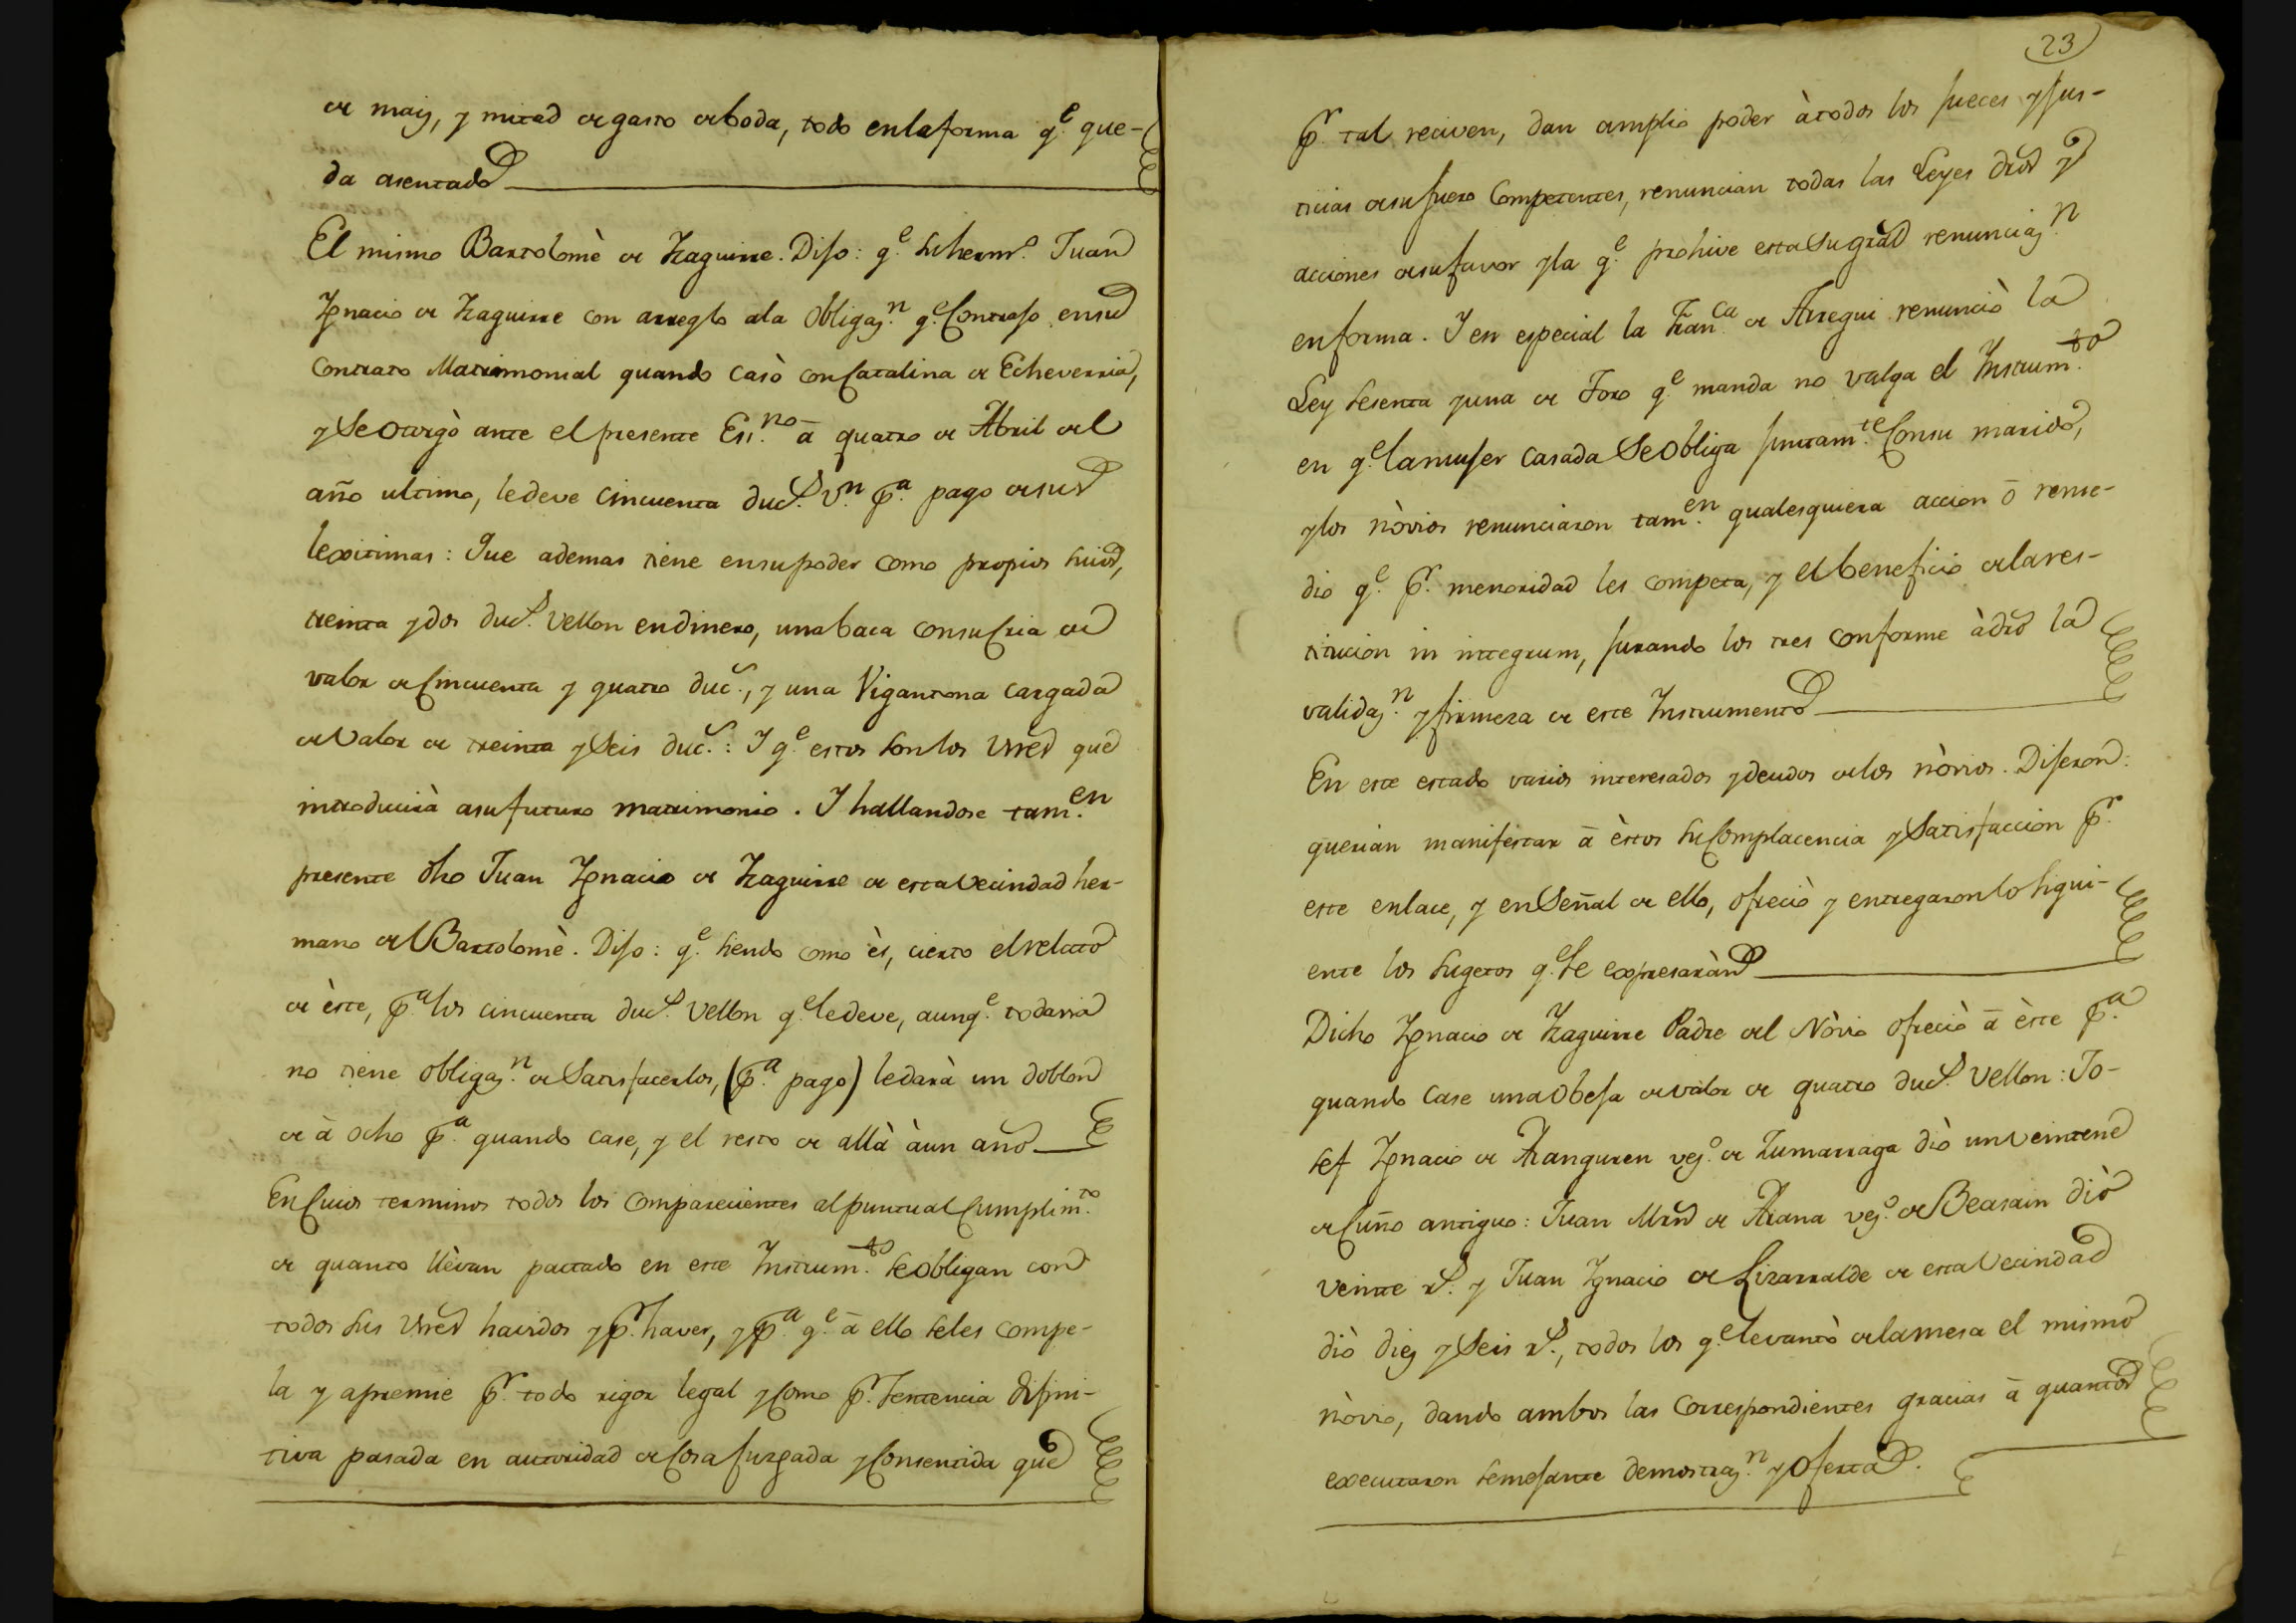 de maiz, y mitad de gasto de boda, todo en la forma q.e que-
da asentado
El mismo Bartolomè de Yzaguirre. Dijo: q.e su herm.o Juan
Ygnacio de Yzaguirre con arreglo ala obligaz.n q.e Contrajo en su
Contrato Matrimonial quando casò con Catalina de Echeverria,
y Se otorgò ante el presente Es.no ā quatro de Abril del
año ultimo, le deve Cincuenta duc.s V.n p.a pago de sus
lexitimas: Que ademas tiene en su poder como propios suios,
treinta y dos duc.s Vellon en dinero, una baca con su Cria de
valor de Cincuenta y quatro duc.s, y una Vigantona cargada
de Valor de treinta y Seis duc.s: Y q.e estos son los Vnes que
introducirà a su futuro matrimonio. Y hallandose tam.en
presente dho Juan Ygnacio de Yzaguirre de esta Vecindad her-
mano del Bartolomè. Dijo: q.e siendo como ès, cierto el relato
de èste, p.a los cincuenta duc.s Vellon q.e le deve, aunq.e todavia
no tiene obligaz.n de Satisfacerlos, (p.a pago) le darà un doblon
de à ocho p.a quando case, y el resto de allà à un año
En Cuios terminos todos los Comparecientes al puntual Cumplim.to
de quanto llèvan pactado en este Instrum.to se obligan con
todos sus Vnes havidos y p.r haver, y p.a q.e ā ello se les compe-
la y apremie p.r todo rigor legal y Como p.r Sentencia difini-
tiva pasada en autoridad de Cosa juzgada y Consentida que
23
p.r tal reciven, dan amplio poder à todos los jueces y jus-
ticias de su fuero Competentes, renuncian todas las Leyes dros y
acciones de su favor y la q.e prohive esta su gral renunciaz.n
en forma. Y en especial la Fran.ca de Arregui renunciò la
Ley Sesenta y una de Toro q.e manda no valga el Instrum.to
en q.e la mujer casada Se obliga juntam.te Con su marido,
y los nòvios renunciaron tam.en qualesquiera accion ō reme-
dio q.e p.r menoridad les competa, y el beneficio de la res-
titucion in integrum, jurando los tres conforme à dro la
validaz.n y firmeza de este Instrumento
En este estado varios interesados y deudos de los nòvios. Dijeron:
querian manifestar ā èstos su Complacencia y Satisfaccion p.r
este enlace, y en Señal de ello, ofreciò y entregaron lo sigui-
ente los sugetos q.e se expresaràn
Dicho Ygnacio de Yzaguirre Padre del Nòvio ofreciò ā èste p.a
quando Case una Obeja de valor de quatro duc.s Vellon: Jo-
sef Ygnacio de Aranguren vez.o de Zumarraga diò un veinten
de Cuño antiguo: Juan Mrn de Arana vez.o de Beasain diò
veinte r.s y Juan Ygnacio de Lizarralde de esta Vecindad
diò diez y Seis r.s, todos los q.e levantò de la mesa el mismo
nòvio, dando ambos las Correspondientes gracias ā quantos
executaron semejante demostraz.n y oferta.